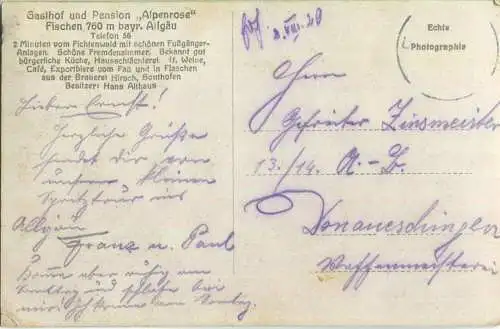 Gasthof und Pension „Alpenrose“
Fischen 760 m bayr. Allgäu
Telefon 56
2 Minuten vom Fichtenwald mit schönen Fußgänger-
Anlagen. Schöne Fremdenzimmer. Bekannt gut
bürgerliche Küche, Hausschlächterei. ff. Weine,
Café, Exportbiere vom Faß und in Flaschen
aus der Brauerei Hirsch, Sonthofen
Besitzer: Hans Althaus
Lieber Ernst!
Herzliche Grüße
sendet dir von
unserer kleinen
Spritztour ins
Allgäu
Franz u. Paul
Komme aber ruhig am
und schlafe bei
mir. Ich komme am Sonntag.
Echte
Photographie
Herrn
Gefreiter Zinsmeister
13./14. A.-D.
Donaueschingen
Waffenmeisterei